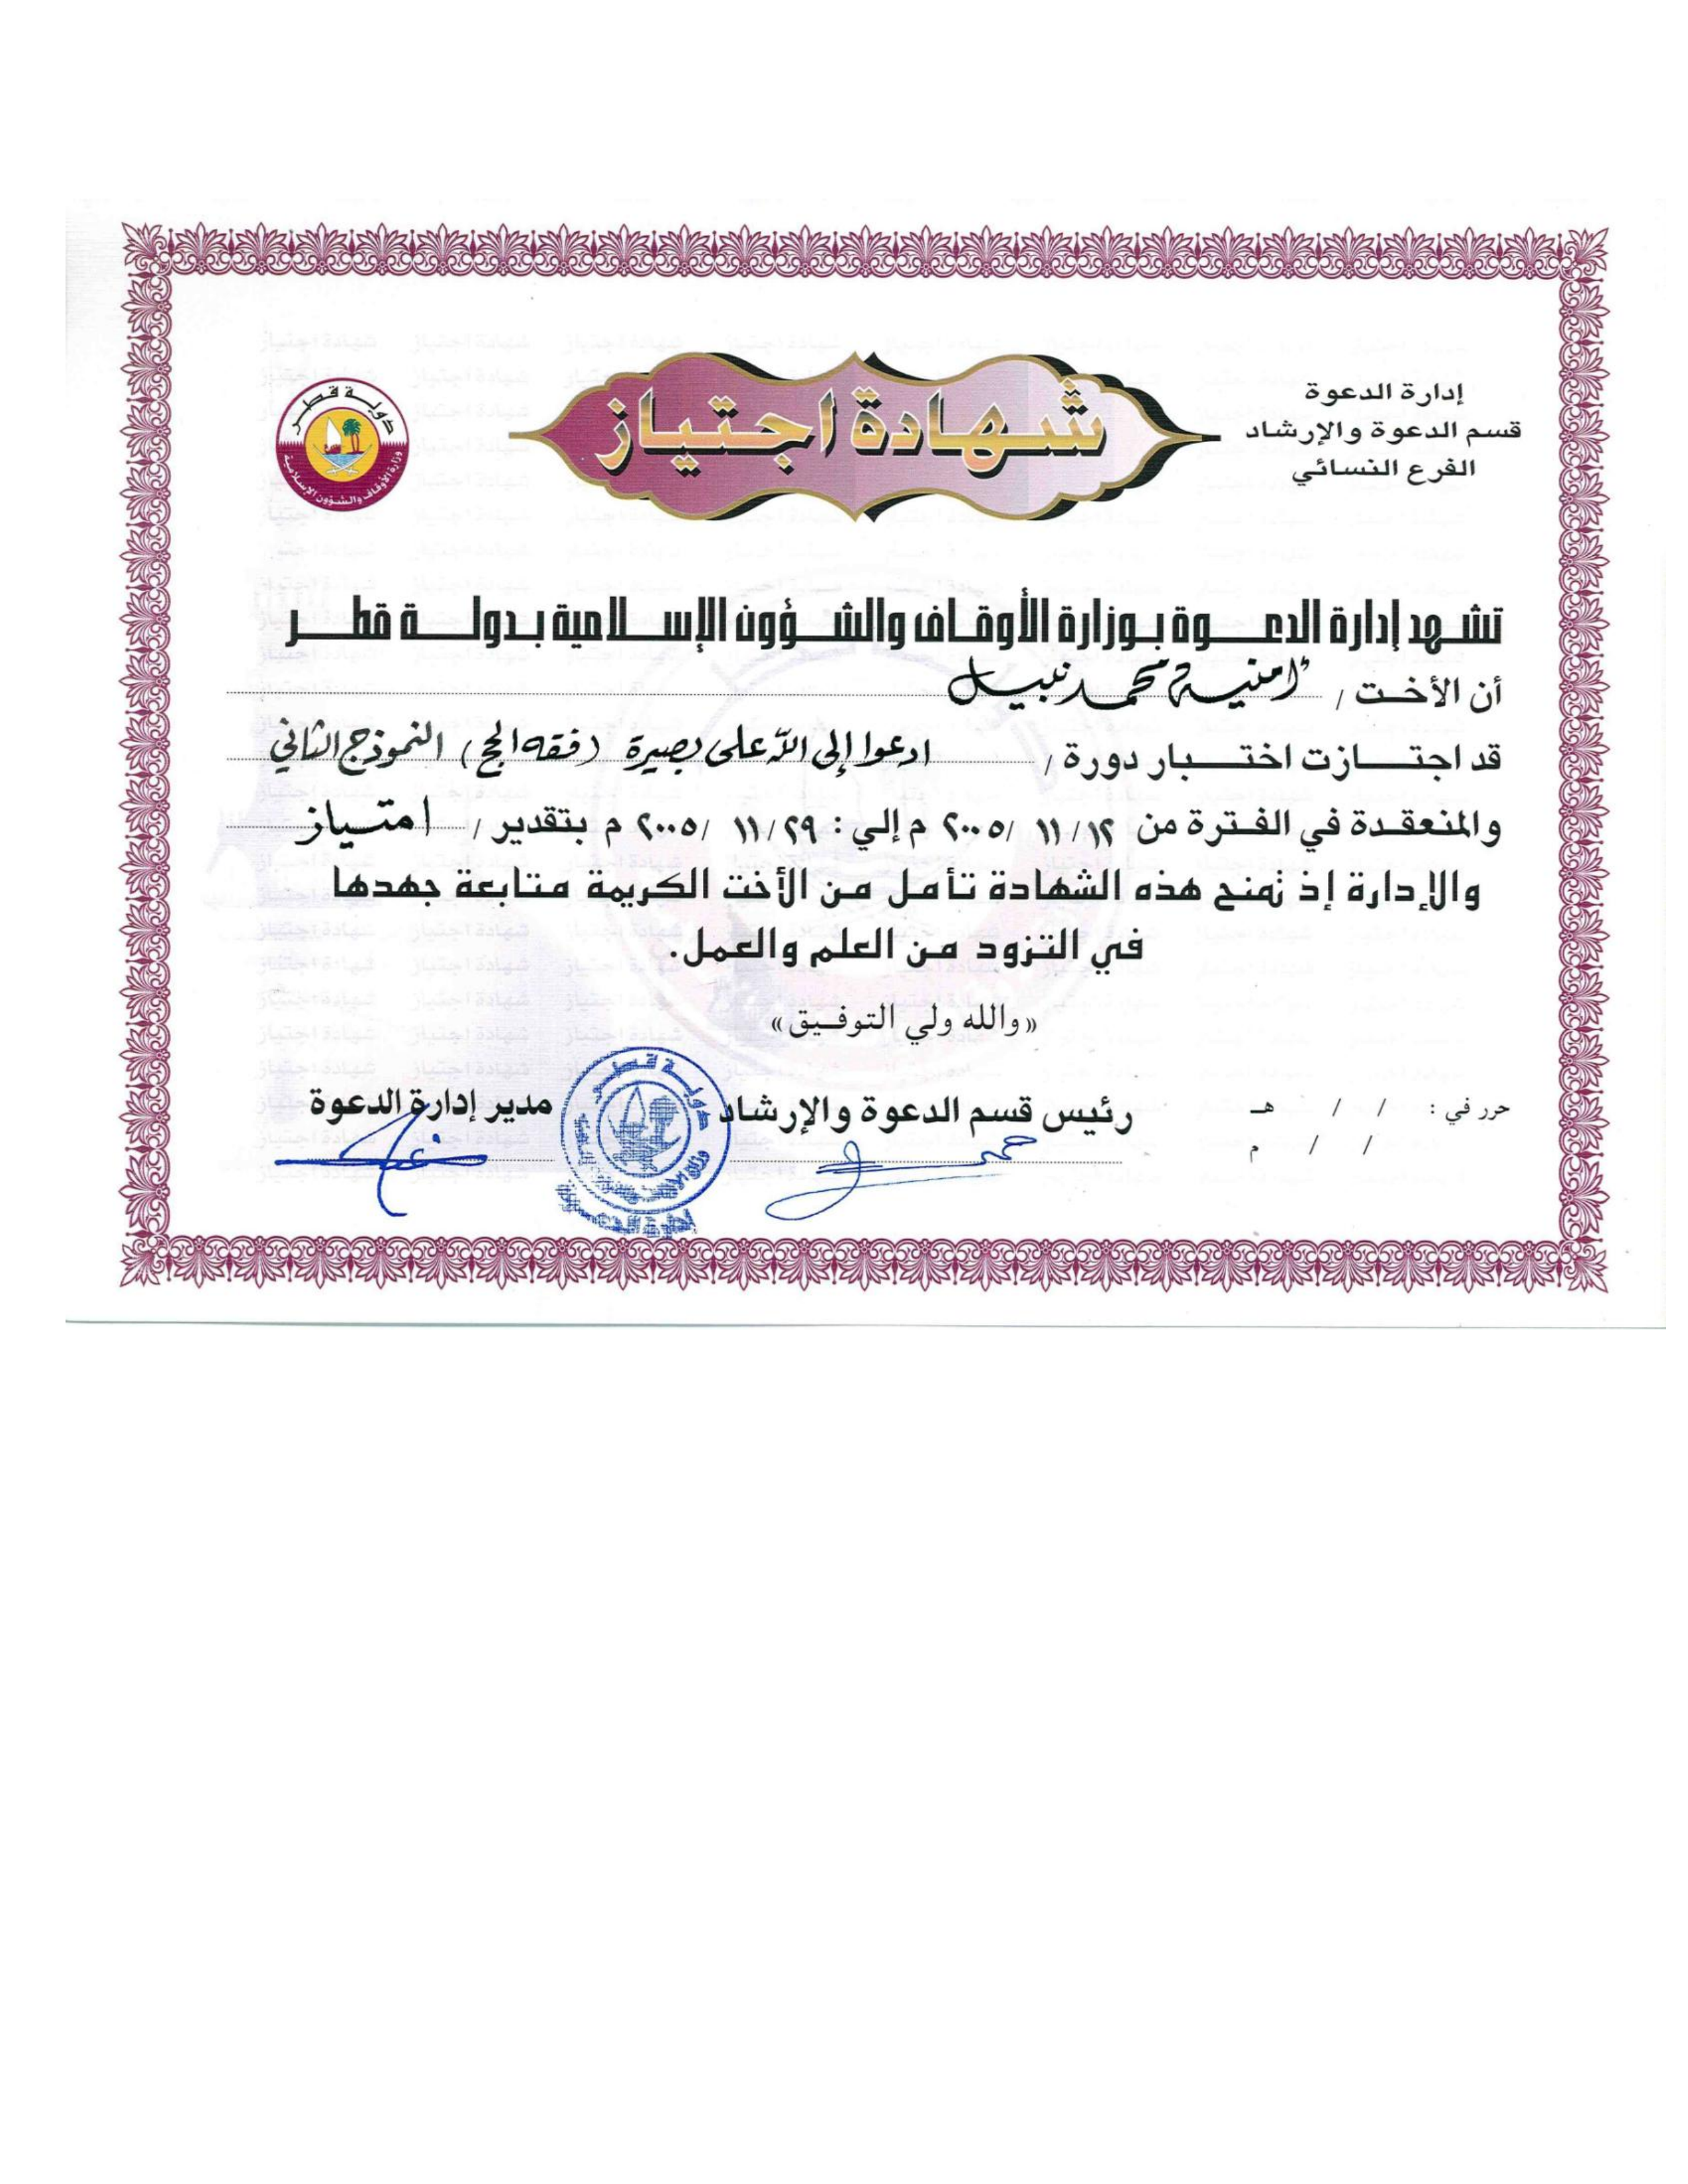 إدارة الدعوة
قسم الدعوة والإرشاد
الفرع النسائي
شهادة اجتياز
دولة قطر
وزارة الأوقاف والشؤون الإسلامية
تشهد إدارة الدعوة بوزارة الأوقاف والشؤون الإسلامية بدولة قطر
أن الأخت / أمنية محمد نبيل
قد اجتازت اختبار دورة / ادعوا إلى الله على بصيرة (فقه الحج) النموذج الثاني
والمنعقدة في الفترة من ١٢/ ١١ /٢٠٠٥ م إلي : ٢٩/ ١١ /٢٠٠٥ م بتقدير / امتياز
والإدارة إذ تمنح هذه الشهادة تأمل من الأخت الكريمة متابعة جهدها
في التزود من العلم والعمل.
«والله ولي التوفيق»
حرر في : / / هـ
/ / م
رئيس قسم الدعوة والإرشاد
مدير إدارة الدعوة
دولة قطر
إدارة الدعوة